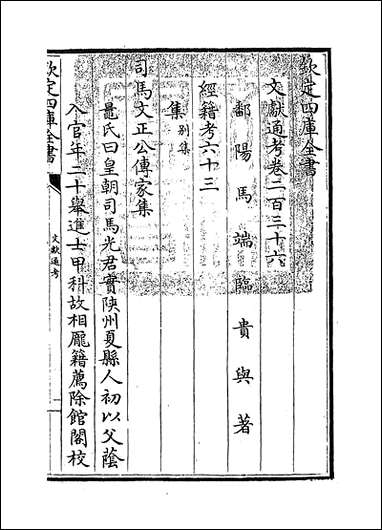 欽定四庫全書
文獻通考卷二百三十六
鄱陽馬端臨貴與著
經籍考六十三
集別集
司馬文正公傳家集
鼂氏曰皇朝司馬光君實陝州夏縣人初以父蔭
入官年二十舉進士甲科故相龐籍薦除館閣校
欽定四庫全書
文獻通考
一